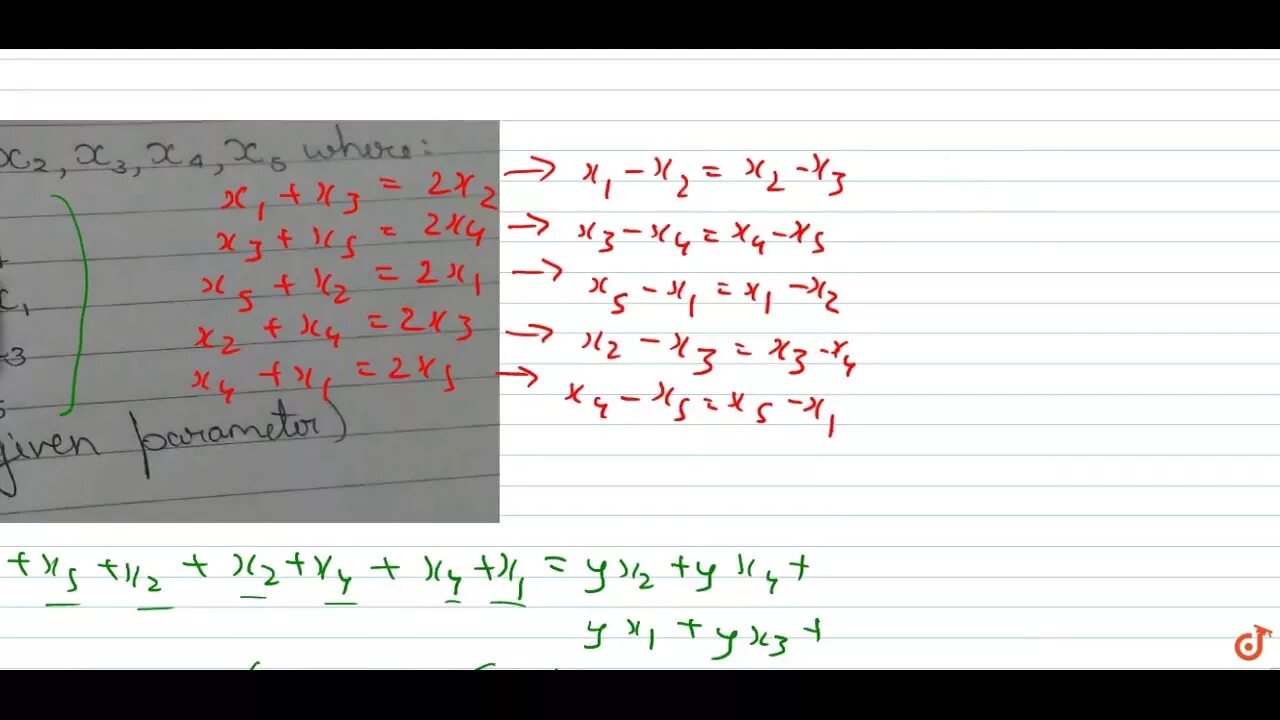 x₂, x₃, x₄, x₅ where:
x₁ + x₃ = 2x₂ → x₁ - x₂ = x₂ - x₃
x₃ + x₅ = 2x₄ → x₃ - x₄ = x₄ - x₅
x₅ + x₂ = 2x₁ → x₅ - x₁ = x₁ - x₂
x₂ + x₄ = 2x₃ → x₂ - x₃ = x₃ - x₄
x₄ + x₁ = 2x₅ → x₄ - x₅ = x₅ - x₁
given parameter)
+ x₅ + x₂ + x₂ + x₄ + x₄ + x₁ = y x₂ + y x₄ +
y x₁ + y x₃ +